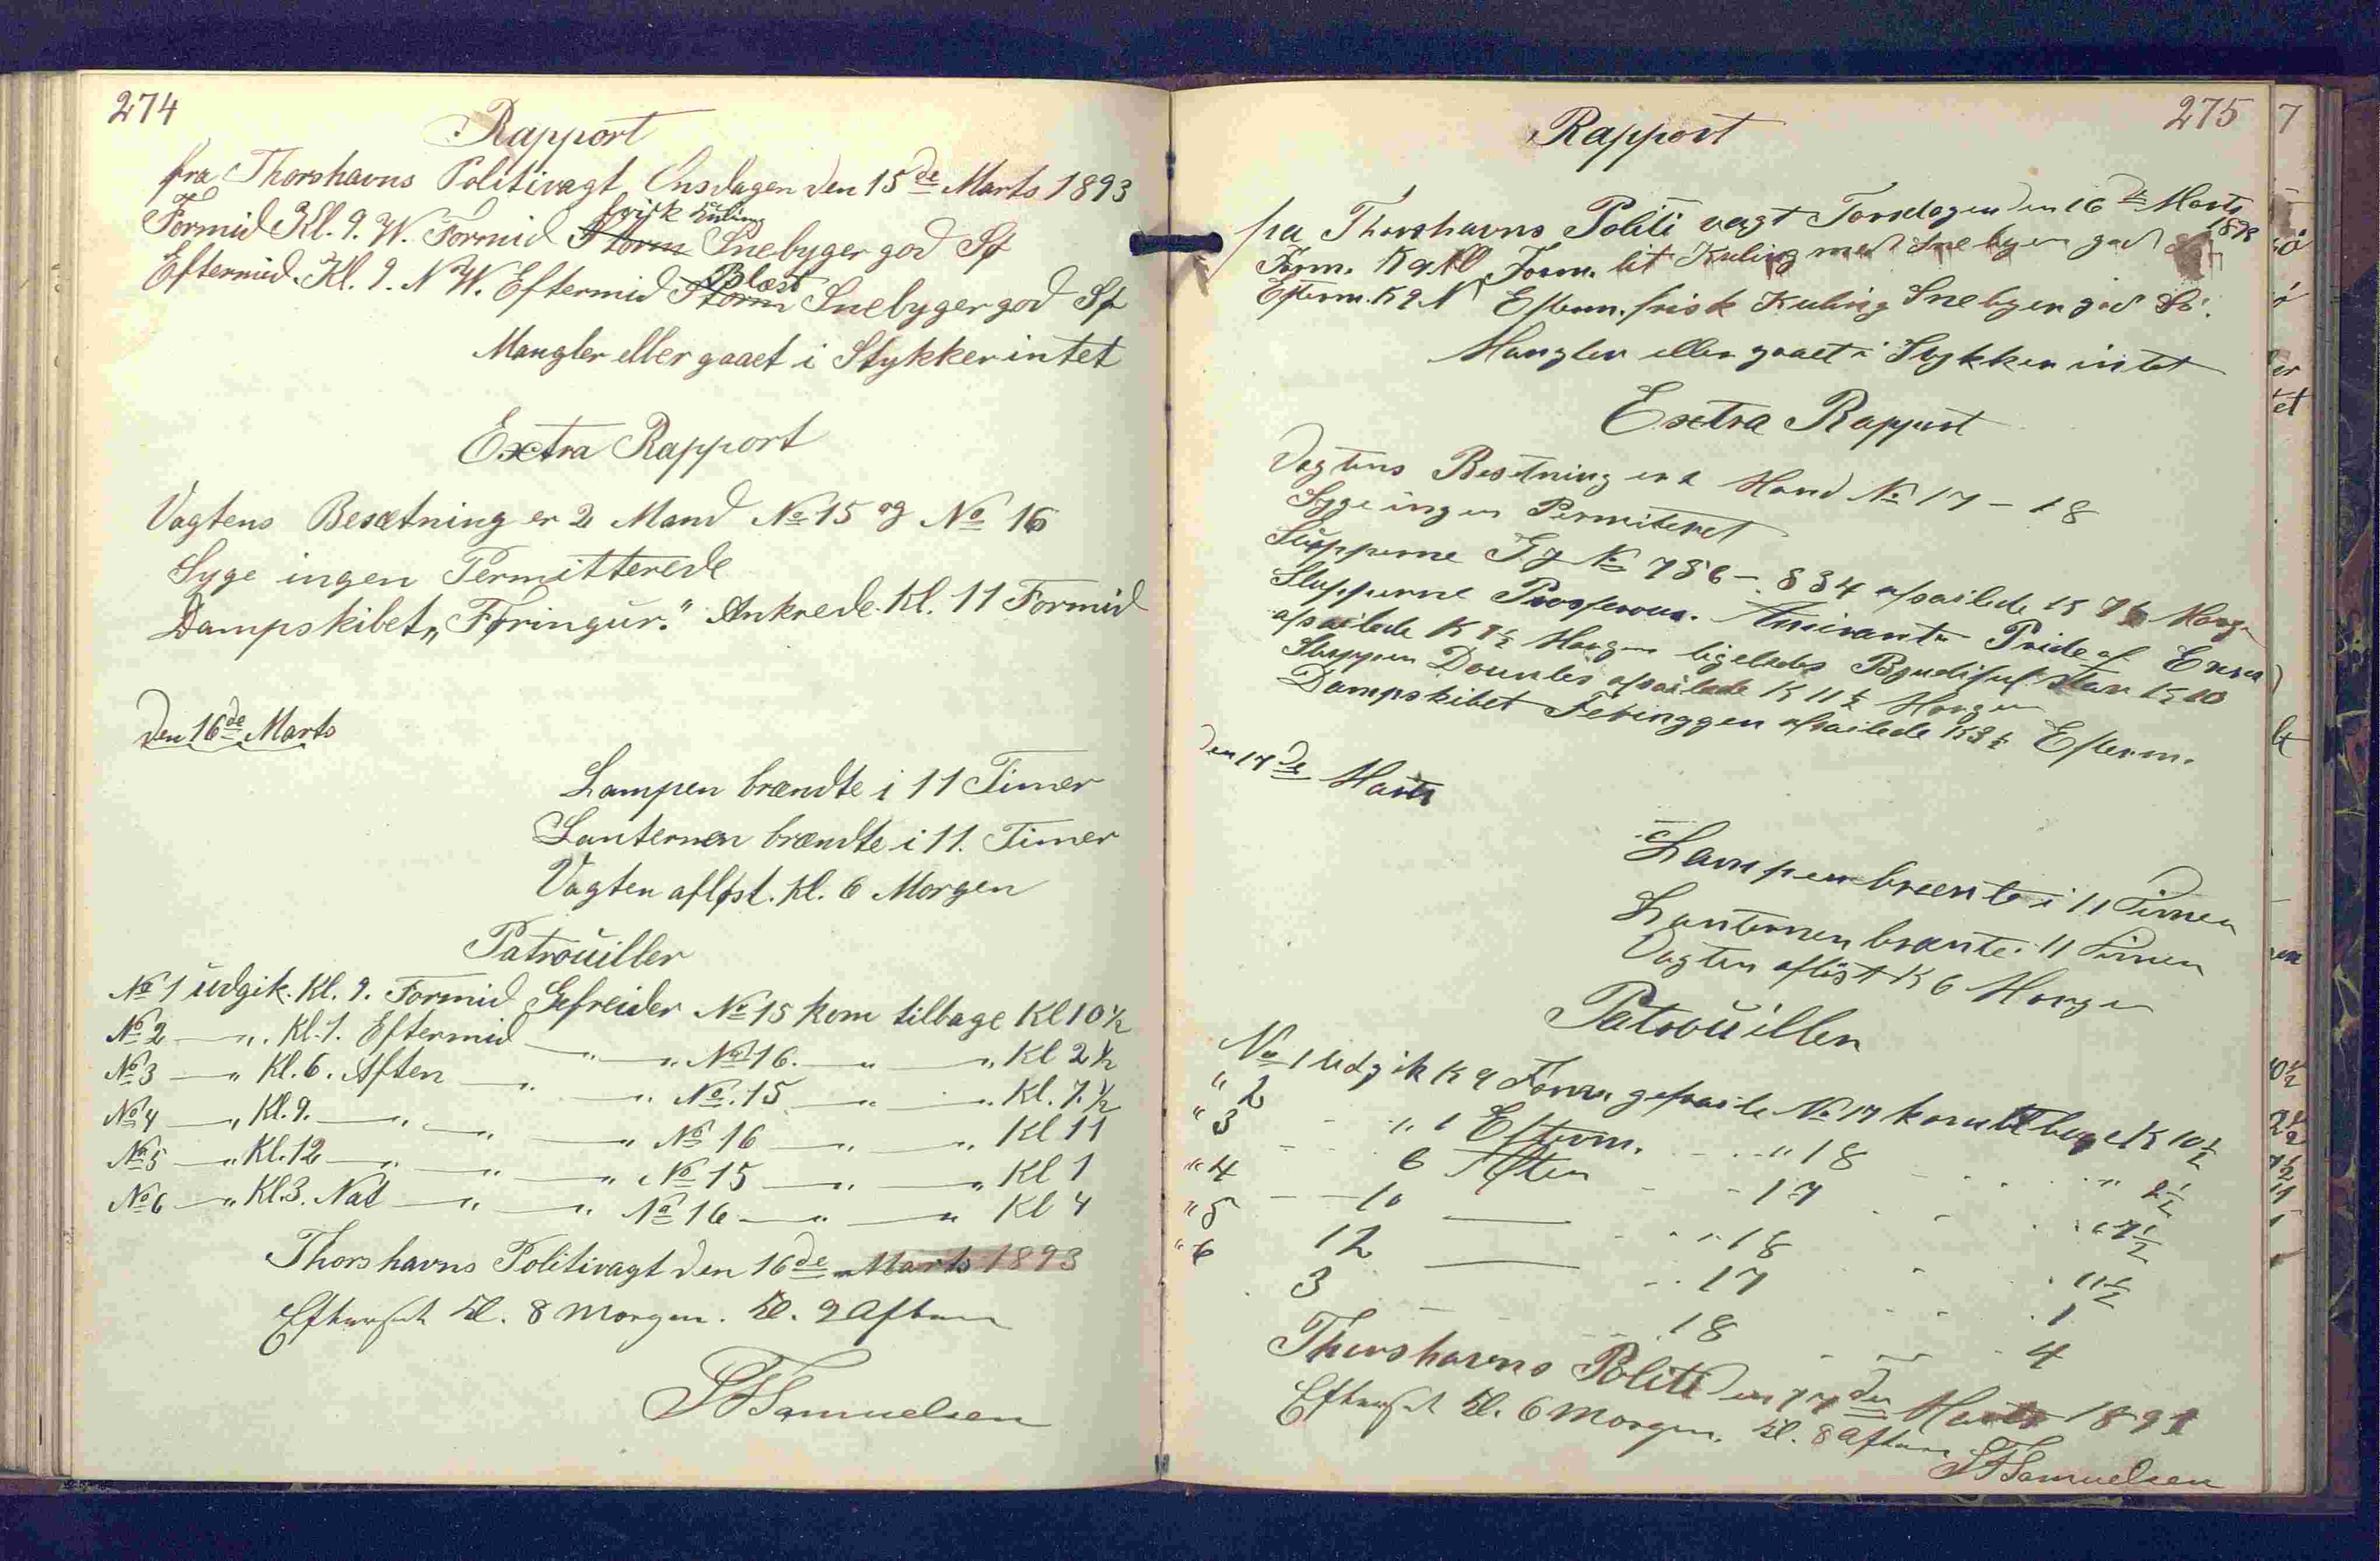 274
Rapport
fra Thorshavns Politivagt Onsdagen den 15de Marts 1893
frisk Kuling
Formid Kl. 9. W. Formid Storm Snebyger god Sø
Blæst
Eftermid. Kl. 9. N W. Eftermid Storm Snebyger god Sø
Mangler eller gaaet i Stykker intet
Extra Rapport
Vagtens Besætning er 2 Mand No 15 og No 16
Syge ingen Permitterede
Dampskibet „Føringur." Ankrede Kl. 11 Formid
Den 16de Marts
Lampen brændte i 11 Timer
Lanternen brændte i 11. Timer
Vagten afløst. Kl. 6 Morgen
Patrouiller
No 1 udgik. Kl. 9. Formid Gefreider No 15 kom tilbage Kl 10 ½
No 2 —„. Kl. 1. Eftermid —„— „ No 16. —„— —„ Kl 2 ½
No 3 —„ Kl. 6. Aften —„— —„ No. 15 —„— —„ Kl. 7. ½
No 4 —„ Kl. 9. —„— —„— —„ No 16 —„— —„ Kl 11
No 5 —„ Kl. 12 —„— —„— —„ No 15 —„— —„ Kl 1
No 6 —„ Kl. 3. Nat —„— —„ No 16 —„— —„ Kl 4
Thorshavns Politivagt den 16de Marts 1893
Efterset Kl. 8 Morgen. Kl. 9 Aften
Samuelsen
275
Rapport
fra Thorshavns Politi vagt Torsdagen den 16de Marts
Form. K 9 Form. lit Kuling med Snebyer god
Efterm. K 9 N Efterm. frisk Kuling Snebyer god Sø.
Mangler eller gaaet i Stykker intet
Extra Rapport
Vagtens Besetning er 2 Mand No 17 – 18
Syge ingen Permiteret
Slupperne No 786 – 834 afsailede K 7½ Morgen
Slupperne Prosperous. Pride of
afsailede K 7½ Morgen ligeledes K 10
Sluppen afsailede K 11½ Morgen
Dampskibet afsailede K 3½ Efterm.
Den 17de Marts
Lampen brænte i 11 Timer
Lanternen brænte i 11 Timer
Vagten afløst K 6 Morgen
Patrouiller
No 1 Udgik K 9 Form No 17 kom tilbage K 10½
" 2 „ 1 Efterm. " 18 " 2½
" 3 6 Aften 17 " 7½
" 4 10 — 18 11½
" 5 12 — 17 1
" 6 3 18 4
Thorshavns Politi den 17de Marts
Efterset Kl. 6 Morgen. Kl. 8 Aften
Samuelsen